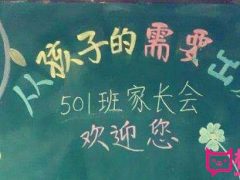 从孩子的需要出
501班家长会
欢迎您